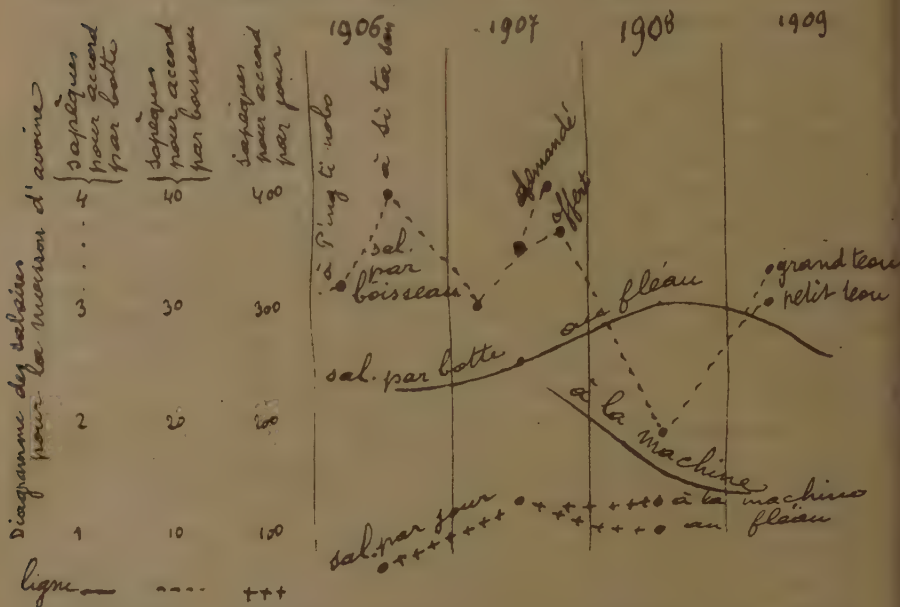 Diagramme des salaires
pour la moisson d'avoine
sapèques
pour accord
par botte
sapèques
pour accord
par boisseau
sapèques
pour accord
par jour
1906
1907
1908
1909
4
40
400
3
30
300
2
20
200
1
10
100
ligne
à P'ing ti
à si ta
sal.
par
boisseau
demandé
offert
grand teou
petit teou
sal. par botte
au fléau
à la machine
sal. par jour
à la machine
au fléau